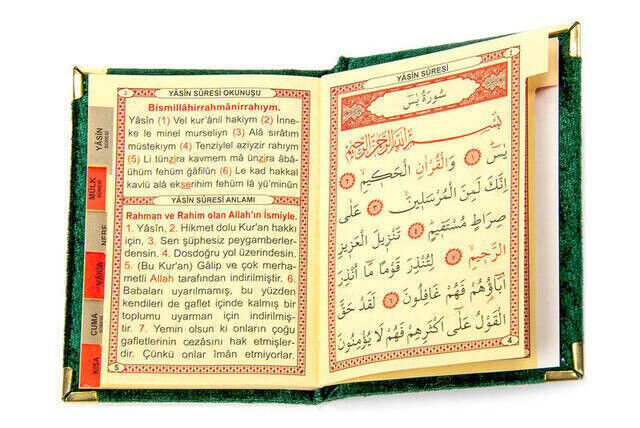 YÂSİN SÛRESİ OKUNUŞU
Bismillâhirrahmânirrahıym.
Yâsîn (1) Vel kur'ânil hakiym (2) İnne-
ke le minel murseliyn (3) Alâ sırâtım
müstekıym (4) Tenziylel aziyzir rahıym
(5) Li tünzira kavmem mâ ünzira âbâ-
ühüm fehüm ğâfilûn (6) Le kad hakkal
kavlü alâ ekserihim fehüm lâ yü'minûn
YÂSİN SÛRESİ ANLAMI
Rahman ve Rahim olan Allah'ın İsmiyle.
1. Yâsîn, 2. Hikmet dolu Kur'an hakkı
için, 3. Sen şüphesiz peygamberler-
densin. 4. Dosdoğru yol üzerindesin.
5. (Bu Kur'an) Gâlip ve çok merha-
metli Allah tarafından indirilmiştir. 6.
Babaları uyarılmamış, bu yüzden
kendileri de gaflet içinde kalmış bir
toplumu uyarman için indirilmiş-
tir. 7. Yemin olsun ki onların çoğu
gafletlerinin cezasını hak etmişler-
dir. Çünkü onlar îmân etmiyorlar.
5
YÂSİN
SÛRESİ
MÜLK
SÛRESİ
NEBE
VÂKIA
CUMA
KISA
٤
YÂSİN SÛRESİ
سُورَةُ يٰسٓ
بِسْمِ اللّٰهِ الرَّحْمٰنِ الرَّحِيمِ
يٰسٓ ﴿١﴾ وَالْقُرْاٰنِ الْحَكِيمِ ﴿٢﴾
اِنَّكَ لَمِنَ الْمُرْسَلِينَ ﴿٣﴾ عَلٰى
صِرَاطٍ مُسْتَقِيمٍ ﴿٤﴾ تَنْزِيلَ الْعَزِيزِ
الرَّحِيمِ ﴿٥﴾ لِتُنْذِرَ قَوْمًا مَٓا اُنْذِرَ
اٰبَٓاؤُ۬هُمْ فَهُمْ غَافِلُونَ ﴿٦﴾ لَقَدْ حَقَّ
الْقَوْلُ عَلٰٓى اَكْثَرِهِمْ فَهُمْ لَا يُؤْمِنُونَ
4